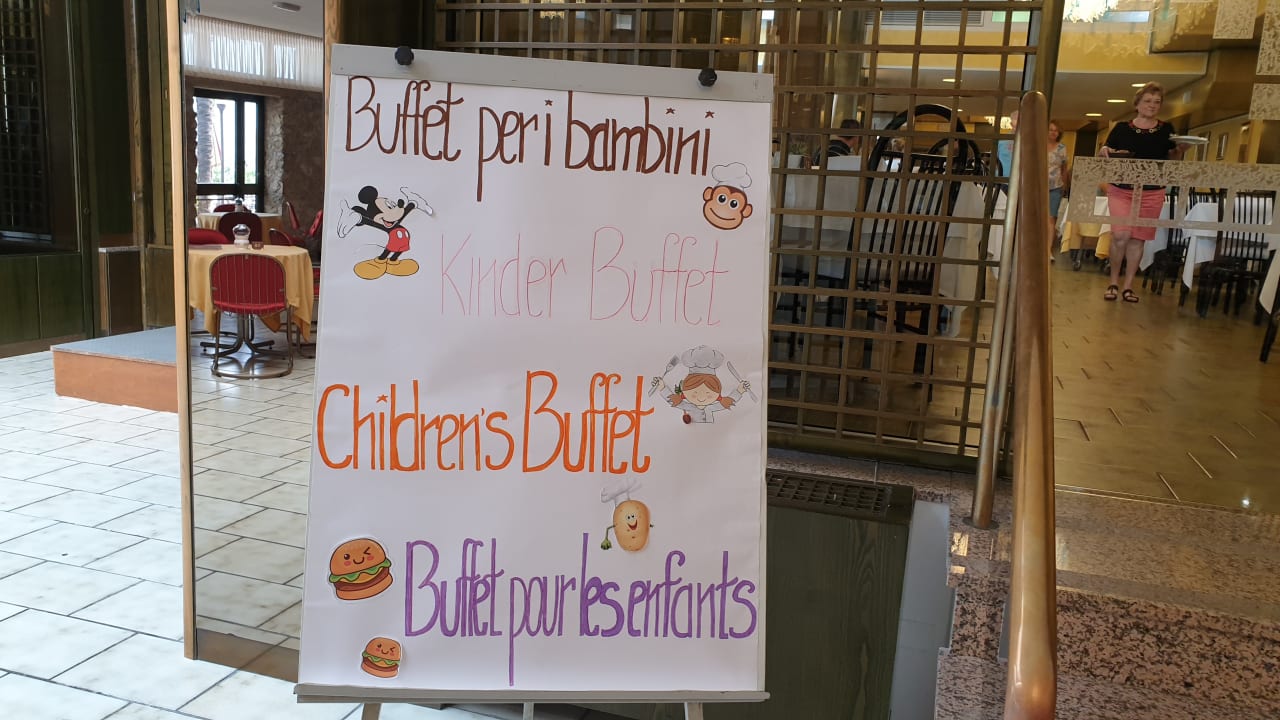 Buffet per i bambini
Kinder Buffet
Children's Buffet
Buffet pour les enfants